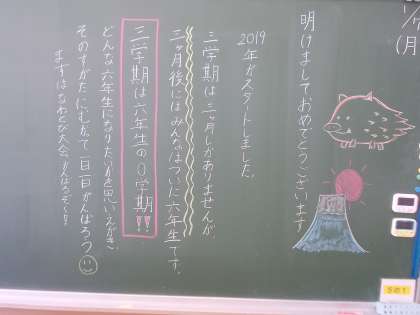 明けましておめでとうございます
2019
年がスタートしました。
三学期は三ヶ月しかありませんが、
三ヶ月後にはみんなはついに六年生です。
三学期は六年生の0学期!!
どんな六年生になりたいかを思いえがき、
そのすがたにむかって一日一日がんばろう
まずはなわとび大会がんばるぞ!!
1/7
(月
5の1